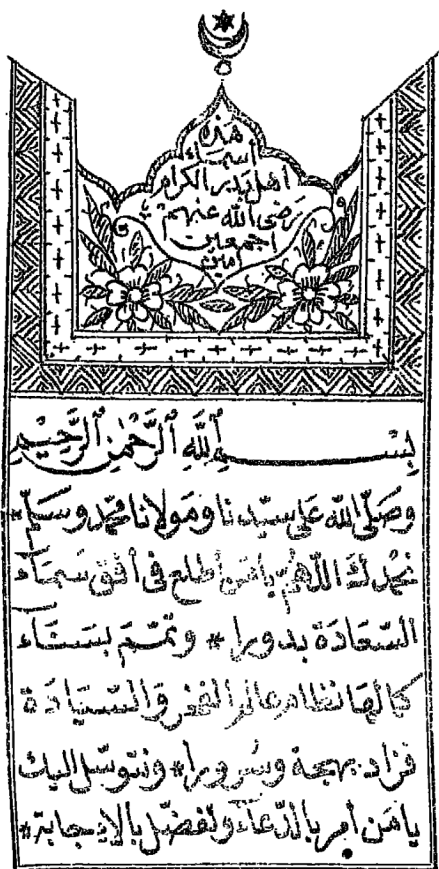 هذه
أسماء
اهل بدر الكرام
رضى الله عنهم
اجمعين
امين
بِسْمِ ٱللَّهِ ٱلرَّحْمٰنِ ٱلرَّحِيْمِ
وصلّى الله على سيّدنا ومولانا محمّد وسلّم *
نحمدك اللّهمّ يا من أطلع فى أفق سمآء
السّعادة بدورا * وتمّم بسنآء
كمالها نظام عالم الفخر والسّيادة
فزاد بهجة وسرورا * ونتوسّل اليك
يا من أمر بالدّعآء وتفضّل بالإجابة *